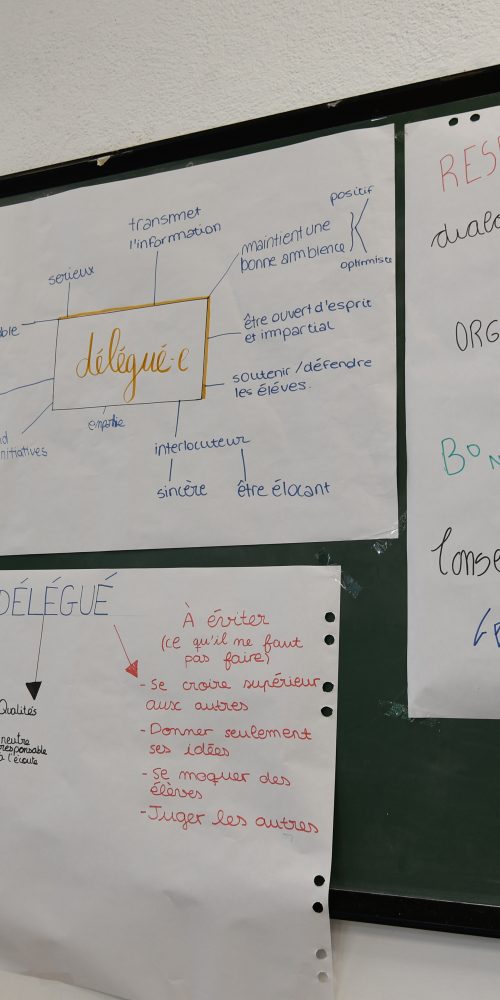 transmet
l'information
serieux
maintient une
bonne ambience
positif
optimiste
être ouvert d'esprit
et impartial
délégué·e
soutenir / défendre
les élèves.
initiatives
interlocuteur
sincère
être élocant
DÉLÉGUÉ
Qualités
neutre
responsable
à l'écoute
À éviter
(ce qu'il ne faut
pas faire)
- Se croire supérieur
aux autres
- Donner seulement
ses idées
- Se moquer des
élèves
- Juger les autres